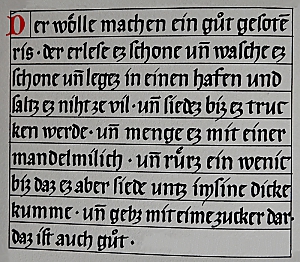 Der wölle machen ein gůt gesotē
ris · der erlese eʒ schone uñ wasche eʒ
schone uñ legeʒ in einen hafen und
saltʒ eʒ niht ʒe vil · uñ siedeʒ biʒ eʒ truc
ken werde · uñ menge eʒ mit einer
mandelmilich · uñ růrʒ ein wenic
biʒ daʒ eʒ aber siede untʒ im sine dicke
kumme · uñ gebʒ mit eime ʒucker dar·
daʒ ist auch gůt ·